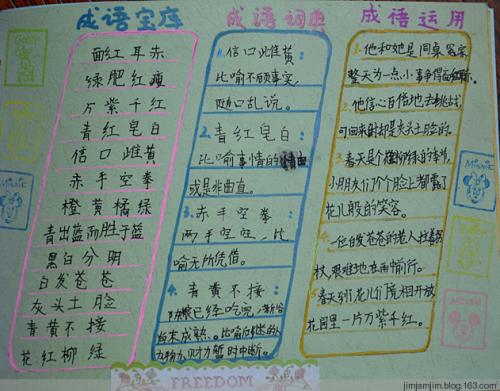 成语宝库
面红耳赤
绿肥红瘦
万紫千红
青红皂白
信口雌黄
赤手空拳
橙黄橘绿
青出蓝而胜于蓝
黑白分明
白发苍苍
灰头土脸
青黄不接
花红柳绿
成语词典
1.信口雌黄:
比喻不顾事实,
随口乱说。
2.青红皂白:
比喻事情的情由
或是非曲直。
3.赤手空拳:
两手空空,比
喻无所凭借。
4.青黄不接:
已经吃完,
尚未成熟。比喻
财力暂时中断。
成语运用
1.他和她是同桌冤家,
整天为一点小事争得面红耳赤。
2.他信心百倍地去挑战,
可回来时却是灰头土脸的。
3.春天是个花红柳绿的季节,
小朋友们个个脸上都露了
花儿般的笑容。
4.一位白发苍苍的老人拄着拐
杖,艰难地在雨中前行。
5.春天到了,花儿们竞相开放,
花园里一片万紫千红。
FREEDOM
jimjamjim.blog.163.com